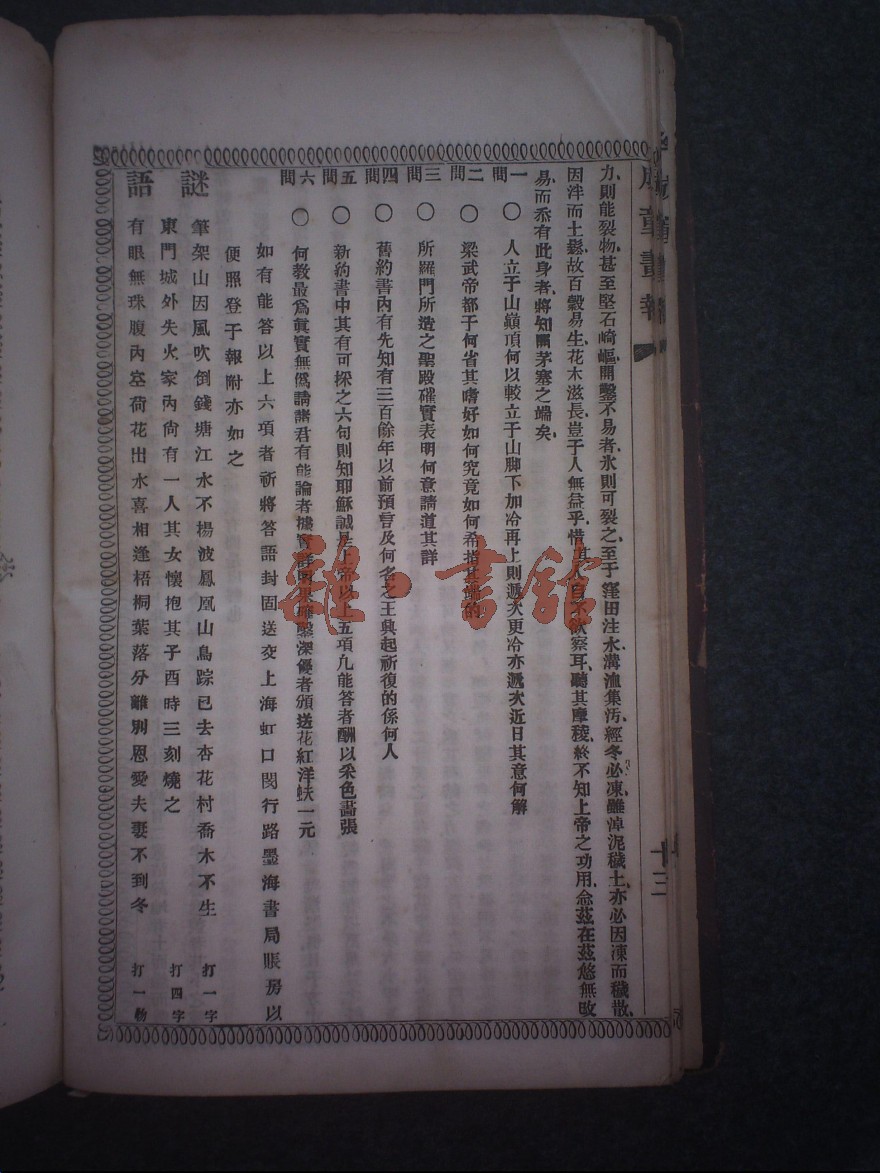 成童畫報
十三
力、則能裂物、甚至堅石崎嶇、開鑿不易者、氷則可裂之、至于窪田注水、溝洫集汚、經冬必凍、雖淖泥穢土、亦必因凍而穢散、
因泮而土鬆、故百穀易生、花木滋長、豈于人無益乎、惜其人自不欲察耳、聽其摩稜、終不知上帝之功用、念茲在茲、悠無斁
易、而忝有此身者、將知閒茅塞之端矣、
一問 ○ 人立于山巔頂何以較立于山脚下加冷再上則遞次更冷亦遞次近日其意何解
二問 ○ 梁武帝都于何省其嗜好如何究竟如何希指其端的
三問 ○ 所羅門所造之聖殿確實表明何意請道其詳
四問 ○ 舊約書內有先知有三百餘年以前預言及何名之王興起祈復的係何人
五問 ○ 新約書中其有可採之六句則知耶穌誠是上帝以上五項凡能答者酬以采色畵張
六問 ○ 何敎最爲眞實無僞請諸君有能論者據實詳明果確鑿深優者頒送花紅洋蚨一元
如有能答以上六項者祈將答語封固送交上海虹口閔行路墨海書局賬房以
便照登于報附亦如之
謎語
筆架山因風吹倒錢塘江水不楊波鳳凰山鳥踪已去杏花村喬木不生 打一字
東門城外失火家內尙有一人其女懷抱其子酉時三刻燒之 打四字
有眼無珠腹內空荷花出水喜相逢梧桐葉落分離別恩愛夫妻不到冬 打一物
雜·書館